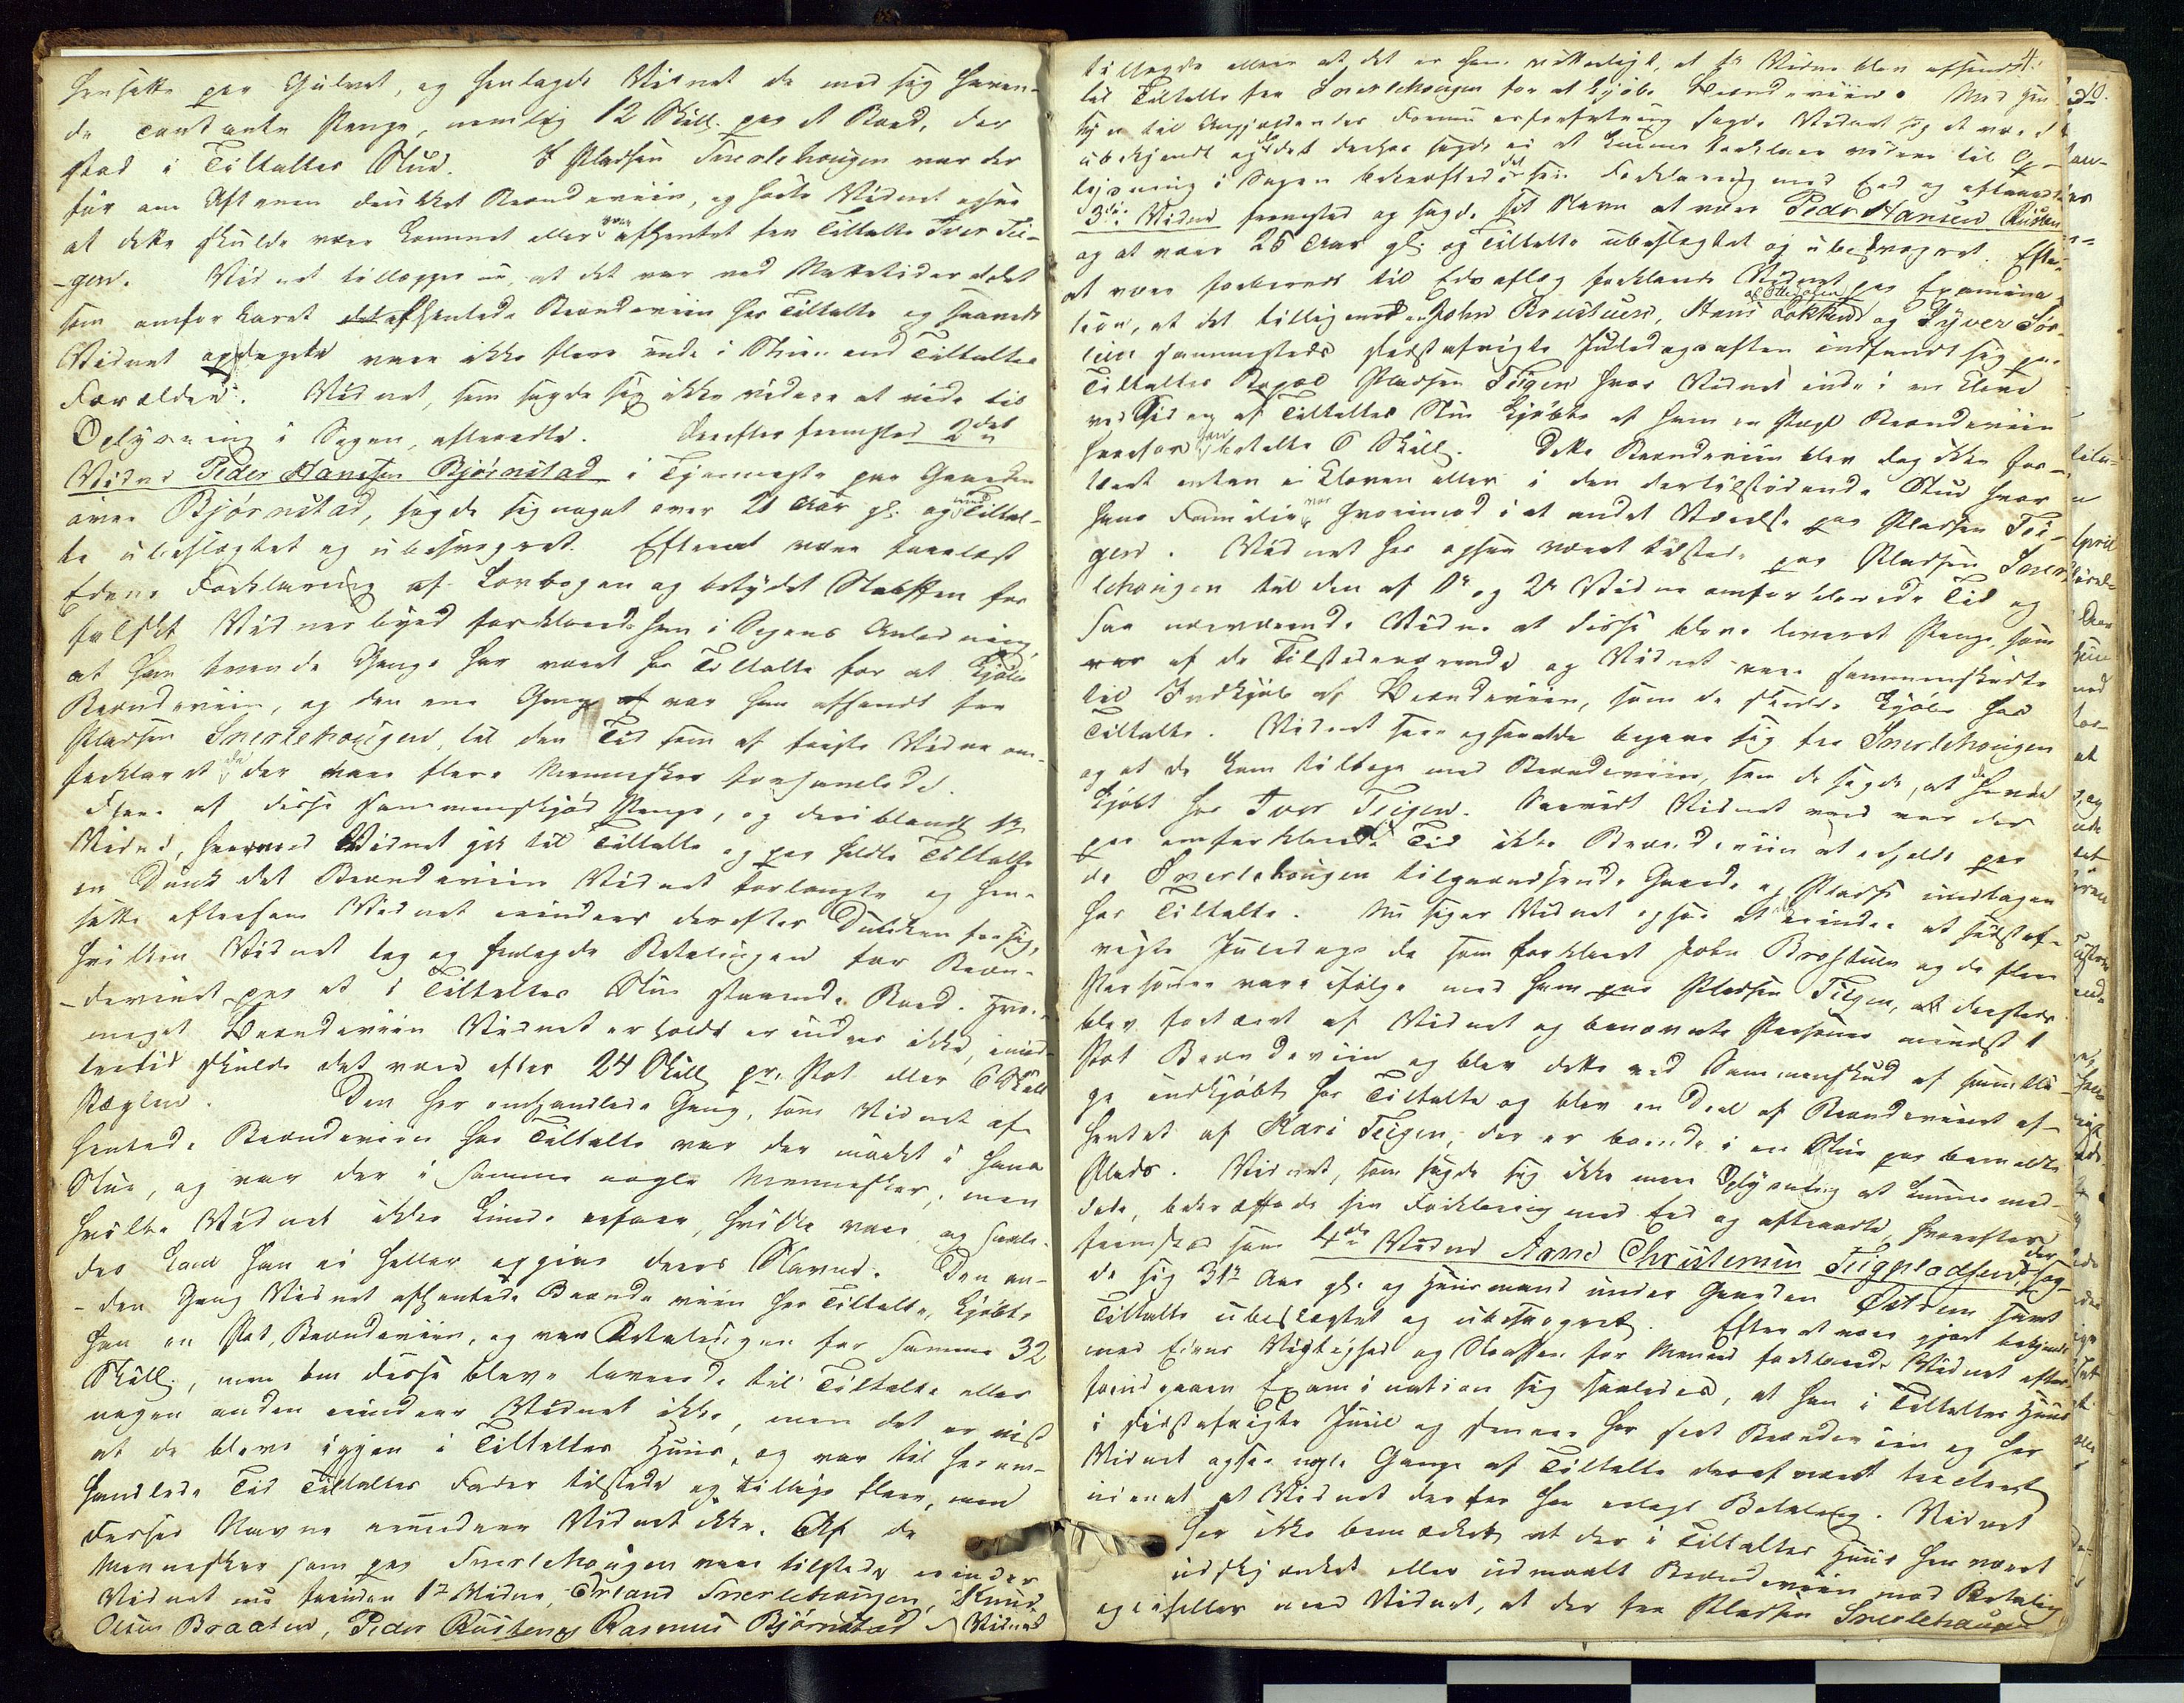 hensatte paa Gulvet, og henlagde Vidnet de med sig haven-
de contante Penge, nemlig 12 Skill. paa et Bord, der
stod i Tiltaltes Stue. I Pladsen Snerlehougen var der
før om Aftenen drukket Brændeviin, og hørte Vidnet ogsaa
at dette skulde være kommet eller være afhentet fra Tiltalte Iver Tei-
gen. Vidnet tillægger nu, at det var ved Nattetider at det
som anforklaret afhentede Brændeviin hos Tiltalte og saavidt
Vidnet opdagede vare ikke flere inde i Stuen end Tiltaltes
Forældre. Vidnet, som sagde sig ikke videre at vide til
Oplysning i Sagen, aftraadte. Derefter fremstod 2det
Vidne Peder Hansen Bjørnstad i Tjenneste paa Gaarden
øvre Bjørnstad, sagde sig noget over 21 Aar gl. og med Tiltal-
te ubeslægtet og ubesvogret. Efter at være forelæst
Edens Forklaring af Lovbogen og betydet Straffen for
falskt Vidnesbyrd forklarede han i Sagens Anledning,
at han tvende Gange har været hos Tiltalte for at kjøbe
Brændeviin, og den ene Gang var han afsendt fra
Pladsen Snerlehougen, til den Tid som af første Vidne om-
forklaret da der vare flere Mennesker forsamlede.
Flere af disse sammenskjød Penge, og deriblandt 1te
Vidne, hvormed Vidnet gik til Tiltalte og paafyldte Tiltalte
en Dunk det Brændeviin Vidnet forlangte og hen-
satte eftersom Vidnet erindrer derefter Dunken fra sig,
hvilken Vidnet tog og henlagde Betalingen for Bræn-
devinet paa et i Tiltaltes Stue staaende Bord. Hvor-
meget Brændeviin Vidnet erholdt erindres ikke, imid-
lertid skulde det være efter 24 Skill pr. Pot eller 6 Skill
Pæglen. Den her omhandlede Gang, som Vidnet af-
hentede Brændeviin hos Tiltalte var der mørkt i hans
Stue, og var der i samme nogle Mennesker, men
hvilke Vidnet ikke kunde erfare, hvilke vare, og saale-
des kan han ei heller opgive deres Navne. Den an-
den Gang Vidnet afhentede Brændeviin hos Tiltalte, kjøbte
han en Pot Brændeviin, og var Betalingen for samme 32
Skill., men om disse bleve leverede til Tiltalte eller
nogen anden erindrer Vidnet ikke, men det er vist
at de bleve igjen i Tiltaltes Huus, og var til her om-
handlede Tid Tiltaltes Fader tilstede og tillige flere, men
disses Navne erindrer Vidnet ikke. Af de
Mennesker som paa Snerlehougen vare tilstede erindrer
Vidnet nu foruden 1te Vidne, Erland Snerlehougen, Knud
Olsen Braaten, Peder Rusten og Rasmus Bjørnstad. Vidnet
4.
tillagde ellers at det er ham vitterligt, at 1te Vidne blev afsendt
til Tiltalte fra Snerlehougen for at kjøbe Brændeviin. Med Hen-
syn til Angjældendes Forum erforfatning sagde Vidnet sig at være
ubekjendt og da det derhos sagde ei at kunne forklare videre til Op-
lysning i Sagen bekræftede det sin Forklaring med Eed og aftraadte
3die Vidne fremstod og sagde sit Navn at være Peder Hansen Rusten
og at være 25 Aar gl. og Tiltalte ubeslægtet og ubesvogret. Efter
at være forberedt til Eds aflæg forklarede Vidnet paa Examina-
tion, at det tilligemed John Brustuen, Hans Løkken og Syver Sør-
lien sammesteds sidstafvigte Juledagsaften indfandt sig paa
Tiltaltes Bopæl Pladsen Teigen hvor Vidnet inde i en Kleve
ved Siden af Tiltaltes Stue kjøbte af ham en Pægl Brændeviin
hvorfor han betalte 6 Skill. Dette Brændeviin blev dog ikke for-
tæret enten i Kleven eller i den dertilstødende Stue hvor
hans Familie var hvorimod i et andet Værelse paa Pladsen Tei-
gen. Vidnet har ogsaa været tilstede paa Pladsen Sner-
lehougen til den af 1te og 2de Vidne omforklarede Tid og
saa nærværende Vidne at disse bleve leveret Penge, som
var af de Tilstedeværende og Vidnet vare sammenskudte
til Indkjøb af Brændeviin, som de skulde kjøbe hos
Tiltalte. Vidnet saae ogsaa de begave sig fra Snerlehougen
og at de kom tilbage med Brændeviin, som de sagde, at de havde
kjøbt hos Iver Teigen. Saavidt Vidnet veed var der
paa omforklarede Tid ikke Brændeviin at erholde paa
de Snerlehougen tilgrændsende Gaarde og Pladse undtagen
hos Tiltalte. Nu siger Vidnet ogsaa at erindre at sidstaf-
vigte Juledag da som forklaret John Brustuen og de flere
Personer vare ifølge med ham paa Pladsen Teigen, at dersteds
blev fortæret af Vidnet og benævnte Personer mindst 1
Pot Brændeviin og blev dette ved Sammenskud af samtli-
ge indkjøbt hos Tiltalte og blev en Deel af Brændevinet af-
hentet af Kari Teigen, der er boende i en Stue paa bemeldte
Plads. Vidnet, som sagde sig ikke mere Oplysning at kunne med-
dele, bekræftede sin Forklaring med Eed og aftraadte, hvorefter
fremstod som 4de Vidne Arne Christensen Teigpladsen, der sag-
de sig 31te Aar gl. og Huusmand under Gaarden Ødtrum samt
Tiltalte ubeslægtet og ubesvogret. Efter at være gjort bekjendt
med Edens Vigtighed og Straffen for Meneed forklarede Vidnet efter
foregaaen Examination sig saaledes, at han i Tiltaltes Huus
i sidstafvigte Juul og senere har seet Brændeviin og har
Vidnet ogsaa nogle Gange af Tiltalte deraf været tracteret
uden at Vidnet derfor har erlagt Betaling. Vidnet
har ikke bemærket at der i Tiltaltes Huus har været
udskjænket eller udmaalt Brændeviin mod Betaling
og ei heller veed Vidnet, at der fra Pladsen Snerlehougen